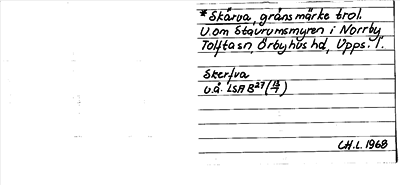 *Skärva, gränsmärke trol.
V. om Stavrumsmyren i Norrby
Tolfta sn, Örbyhus hd, Upps. l.
Skerfva
u.å. LSA B27 (12/7)
CH.L. 1968